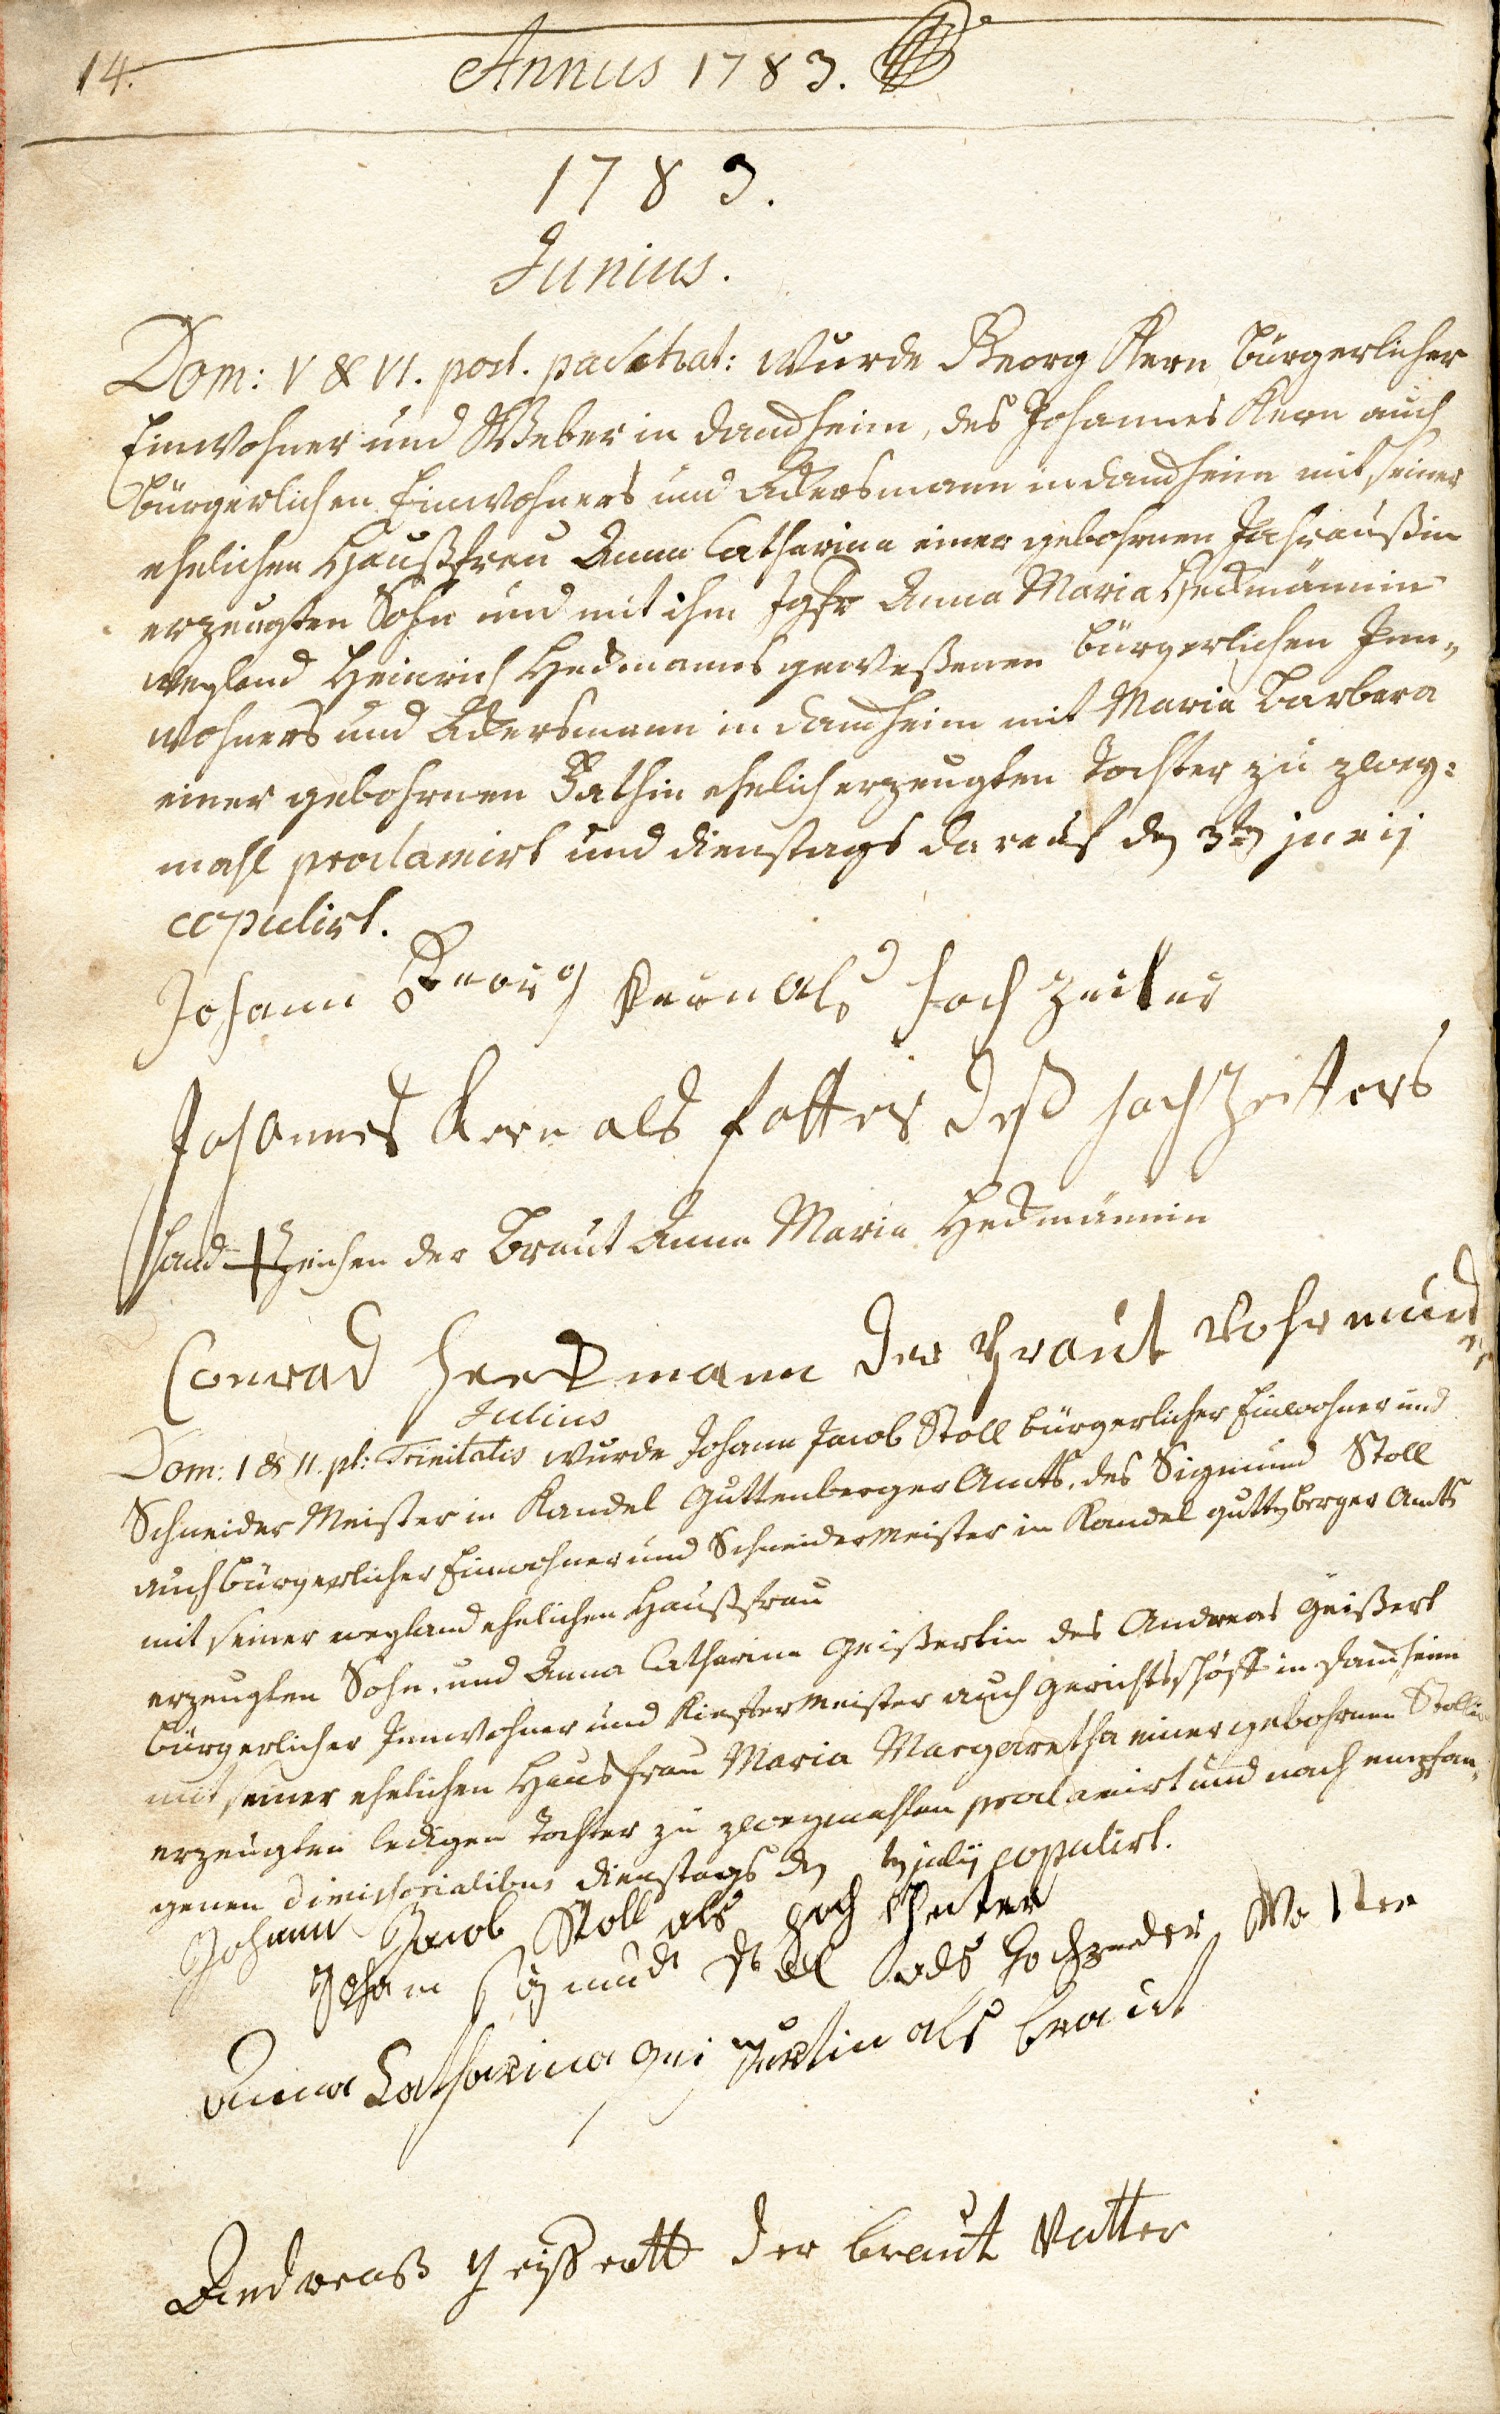 14.
Annus 1783.
1783.
Junius.
Dom: V & VI. post. paschat: wurde Georg Kern, bürgerlicher
Einwohner und Weber in Damheim, des Johannes Kern auch
bürgerlichen Einwohners und Ackersmann in Damheim mit seiner
ehelichen Haußfrau Anna Catharina einer gebohrnen
erzeugten Sohn und mit ihm Jgfr Anna Maria Heckmännin
weyland Heinrich Heckmanns geweßenen bürgerlichen Inn-
wohners und Ackersmann in Damheim mit Maria Barbara
einer gebohrnen ehelich erzeugten Tochter zu zwey-
mahl proclamirt und dienstags darauf den 3ten junij
copulirt.
Johann Georg Kern als hoch zeiter
Johannes Kern als fatter deß hoch zeitters
Hand + Zeichen der Braut Anna Maria Heckmännin
Conrad Heckmann der braut Vohrmund
Julius
Dom: I & II. pt: Trinitatis wurde Johann Jacob Stoll bürgerlicher Einwohner und
Schneider Meister in Kandel Guttenberger Amts, des Sigmund Stoll
auch bürgerlicher Einwohner und Schneidermeister in Kandel guttenberger Amts
mit seiner weyland ehelichen Haußfrau
erzeugten Sohn, und Anna Catharina Geißertin des Andreas Geißert
bürgerlicher Innwohner und Kieffermeister auch Gerichtsschöff in Damheim
mit seiner ehelichen Hausfrau Maria Margaretha einer gebohrnen Stollin
erzeugten ledigen Tochter zu zweymahlen proclamirt und nach empfan-
genen Dimissorialibus dienstags den ten julij copulirt.
Johann Jacob Stoll als hoch Zeiter
Johann Sigmund Stoll als hochzeider Vatter
Anna Catharina geisertin als braut
Andreaß geissertt der braut Vatter